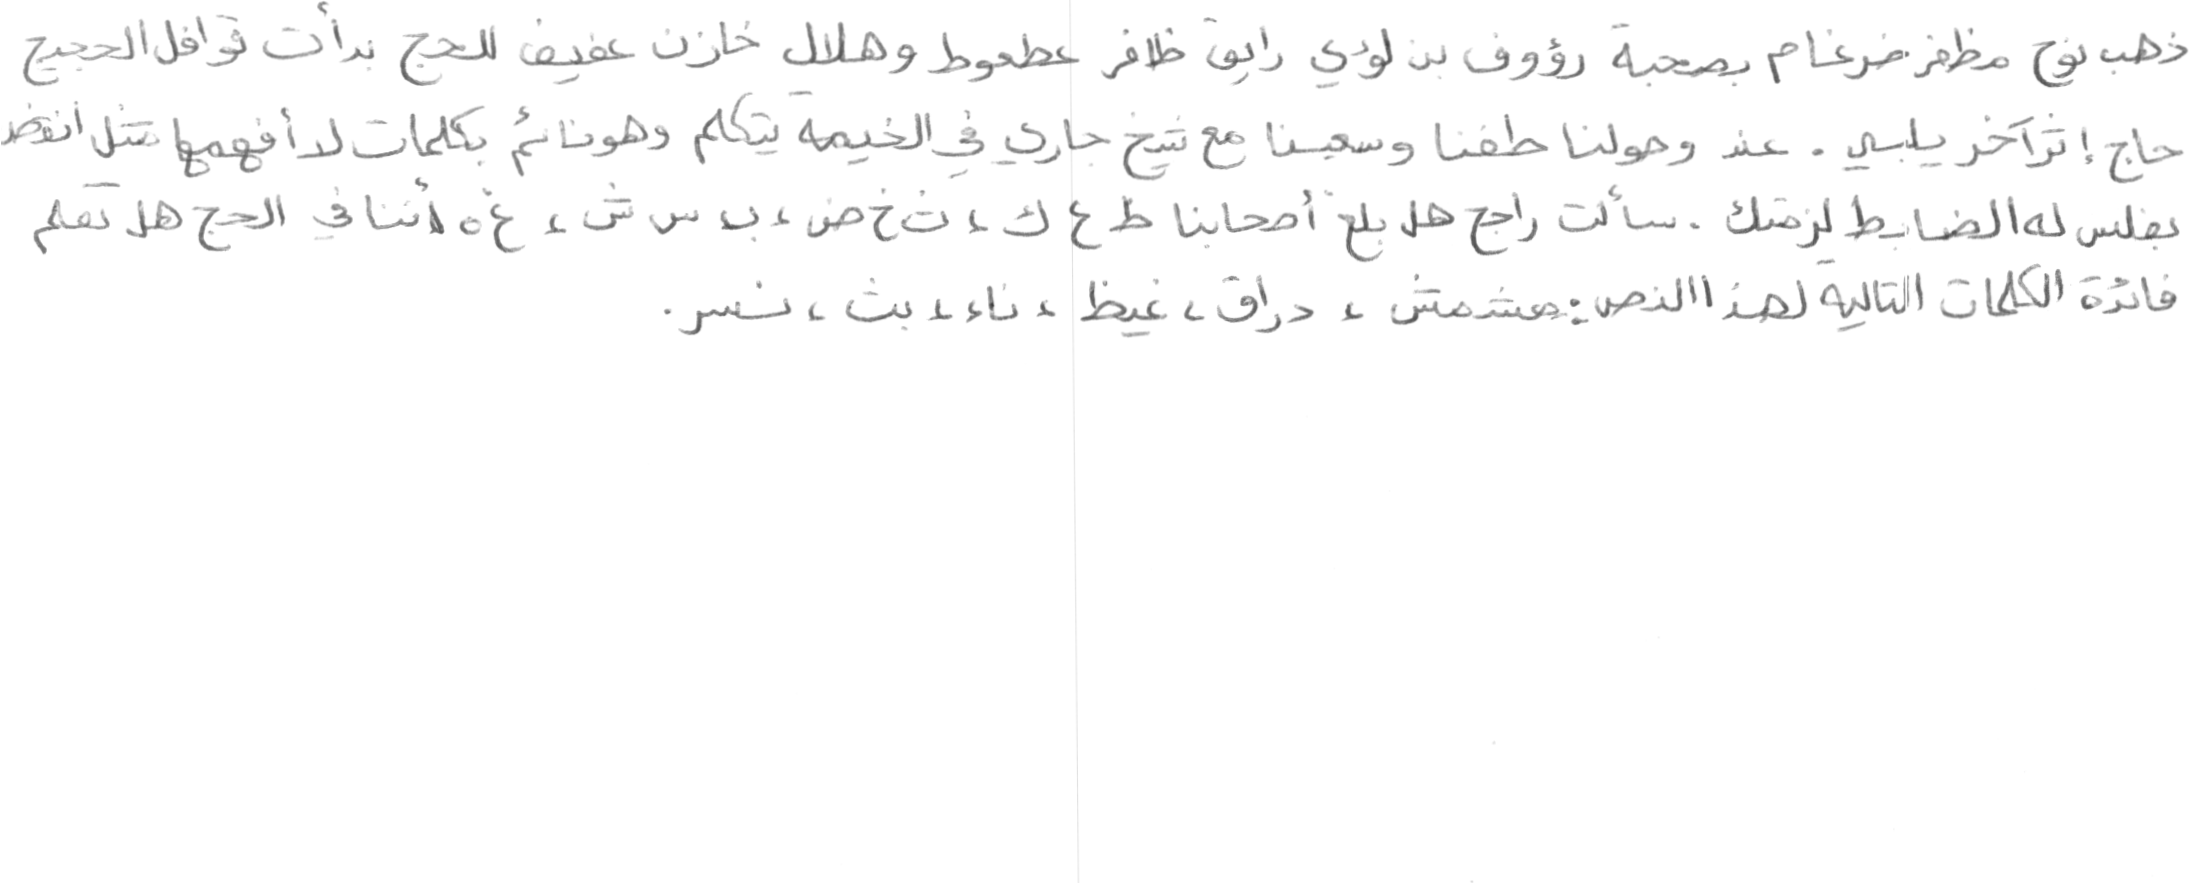 ذهب نوح مظفر ضرغام بصحبة رؤوف بن لؤي رايق ظافر عطعوط وهلال خازن عفيف للحج بدأت قوافل الحجيج
حاج إثر آخر يلبي . عند وصولنا طفنا وسعينا مع شيخ جاري في الخيمة يتكلم وهو نائم بكلمات لا أفهمها مثل أنقض
بغلس له الضابط لزمتك . سألت راجح هل بلغ أصحابنا ط ع ك ، ث خ ض ، ب س ش ، غ ه أننا في الحج هل تعلم
فائدة الكلمات التالية لهذا النص : مشمش ، دراق ، غيظ ، ناء ، بث ، نسر .